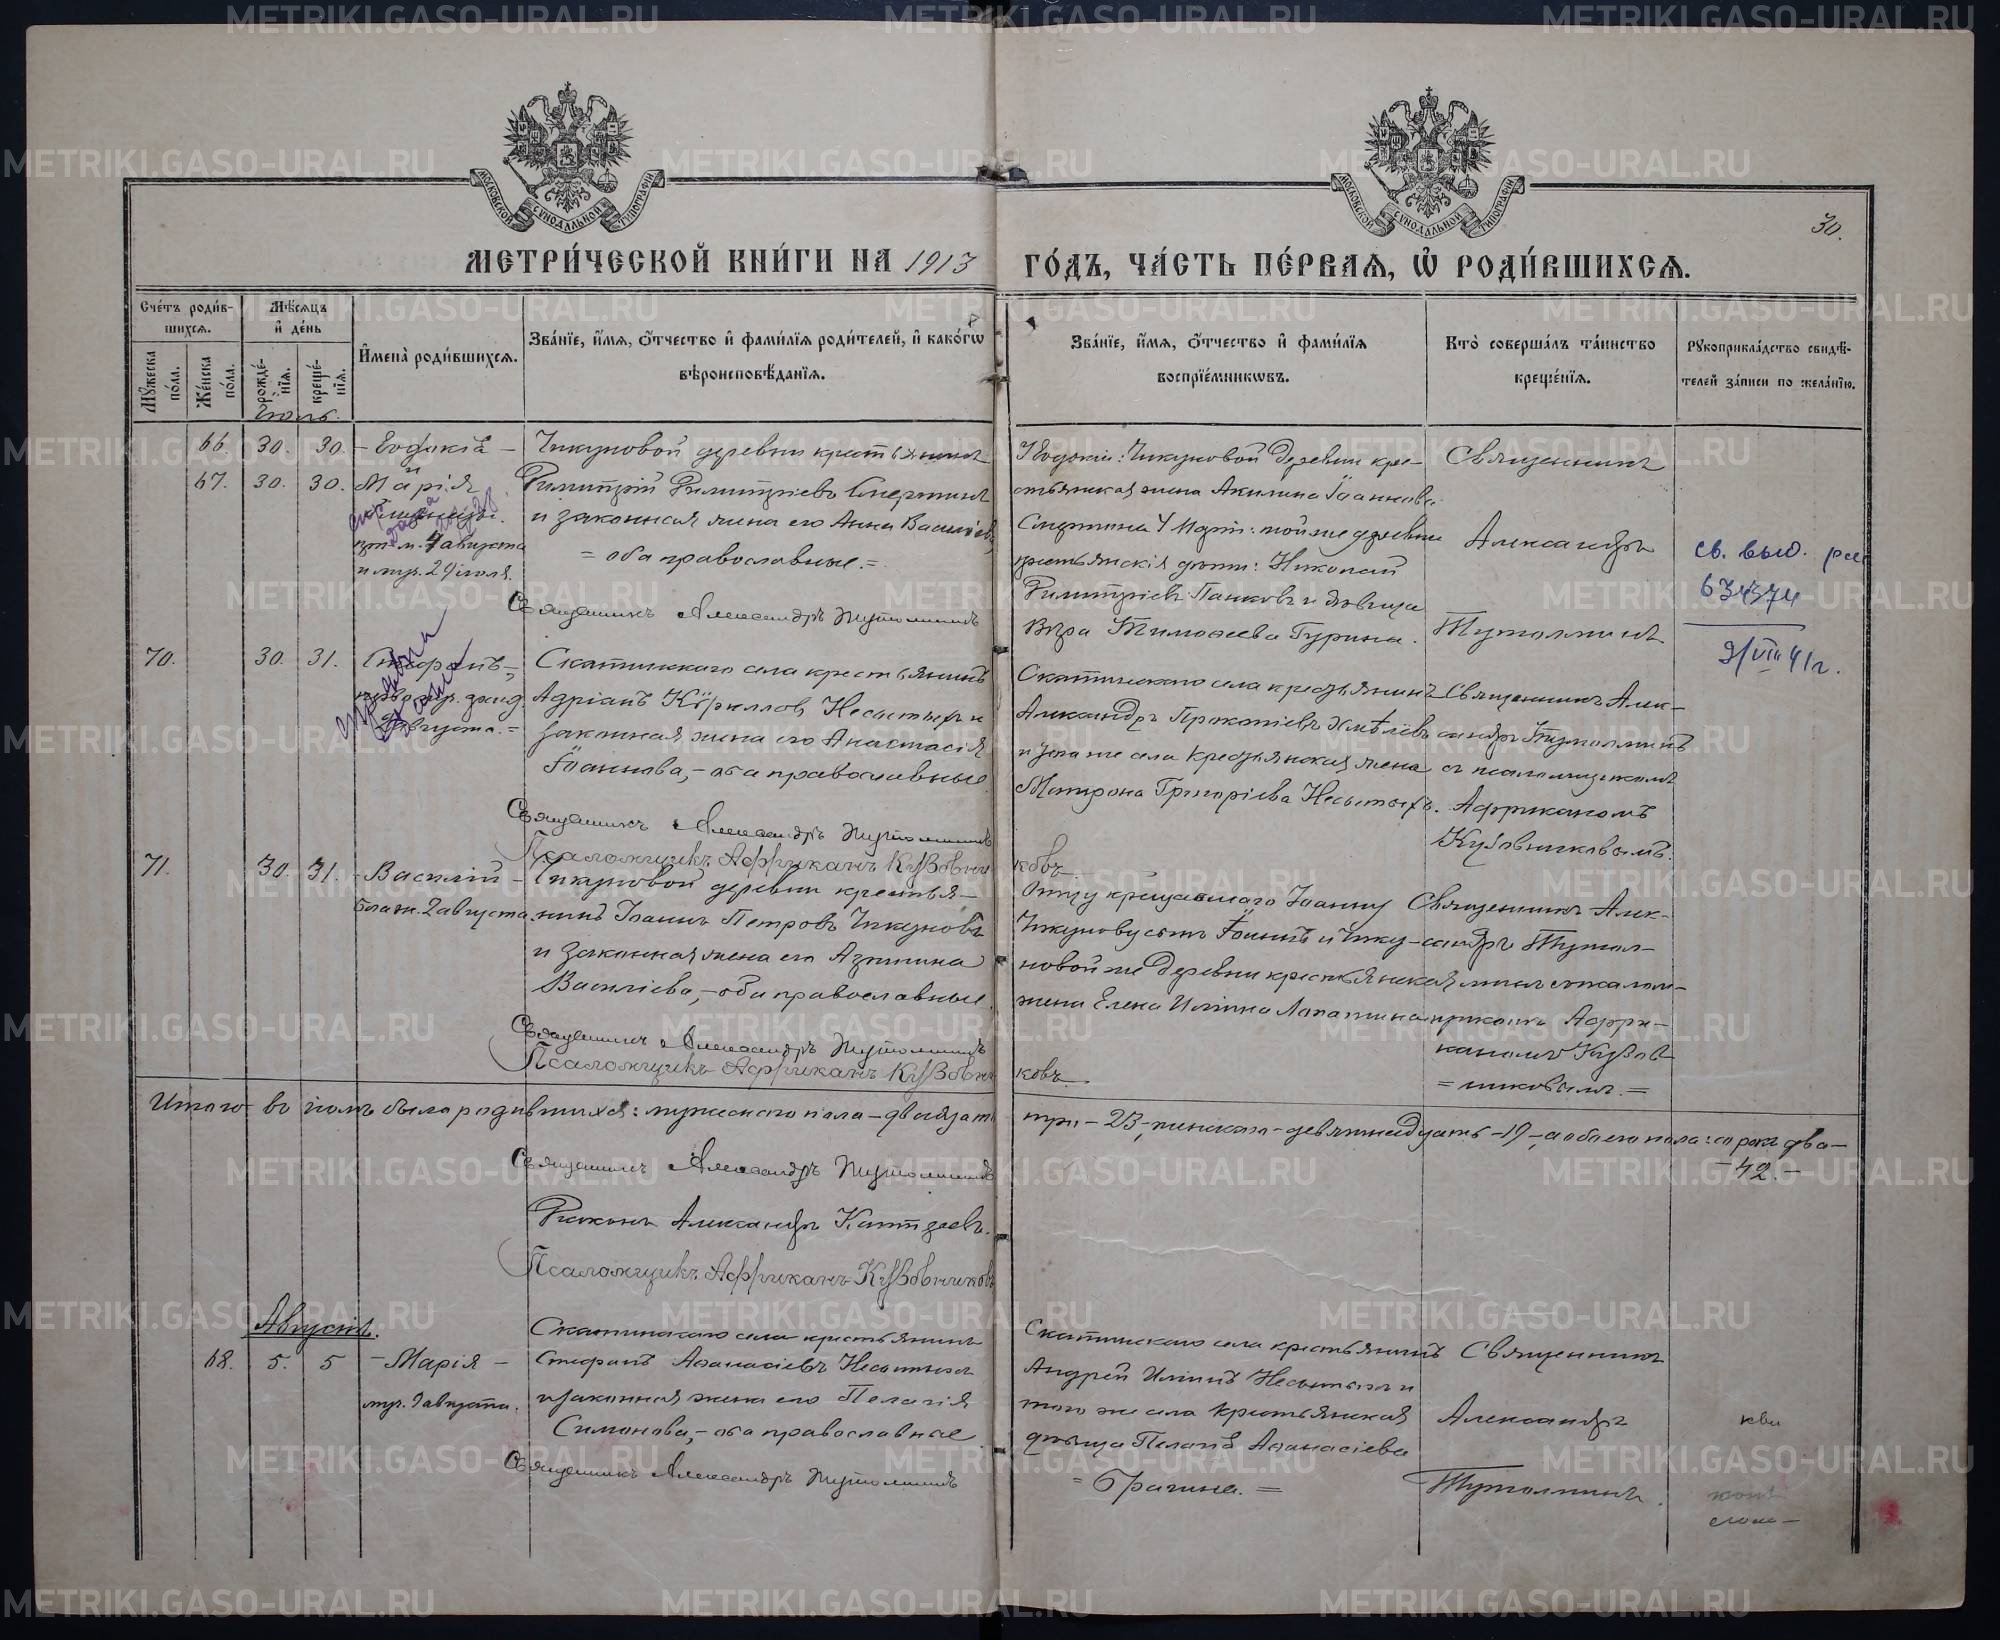 МЕТРИ́ЧЕСКОЙ КНИ́ГИ НА 1913
ГО́ДЪ, ЧА́СТЬ ПЕ́РВАѦ, Ѡ҆ РОДИ́ВШИХСѦ.
30.
МОСКОВСКОЙ СѴНОДАЛЬНОЙ ТИПОГРАФІИ
МОСКОВСКОЙ СѴНОДАЛЬНОЙ ТИПОГРАФІИ
Сче́тъ роди́в-
шихсѧ.
Мꙋ́жеска по́ла.
Же́нска по́ла.
Мѣ́сѧцъ и҆ де́нь
рожде́-нїѧ.
креще́-нїѧ.
И҆мена̀ роди́вшихсѧ.
Зва́нїе, и҆́мѧ, ѻ҆́тчество и҆ фами́лїѧ роди́телей, и҆ како́гѡ
вѣроисповѣ́данїѧ.
Зва́нїе, и҆́мѧ, ѻ҆́тчество и҆ фами́лїѧ
воспрїе́мникѡвъ.
Кто̀ соверша́лъ та́инство
креще́нїѧ.
Рꙋкоприкла́дство свидѣ́-
телей за́писи по жела́нїю.
Іюль.
66. 30. 30. - Евдокія -
67. 30. 30. Марія
близнецы.
пр-м. 4 августа
и муч. 29 іюля.
Чикуновой деревни крестьянинъ
Димитрій Димитріевъ Смертинъ
и законная жена его Анна Василіева
= оба православные. =
Священникъ Александръ Тутолминъ
1 Евдокіи: Чикуновой деревни кре-
стьянская жена Акилина Іоаннова
Смертина У Маріи: той же деревни
крестьянскія дѣти: Николай
Димитріевъ Панковъ и дѣвица
Вѣра Тимоѳеева Гурина.
Священникъ
Александръ
Тутолминъ
св. выд.
634374
9/VIII 41 г.
70. 30. 31. Стефанъ,-
августа. =
Скатинскаго села крестьянинъ
Адріанъ Кѵрилловъ Несытыхъ и
законная жена его Анастасія
Іоаннова,- оба православные
Священникъ Александръ Тутолминъ
Псаломщикъ Африканъ Кузовни
ковъ.
Скатинскаго села крестьянинъ
Александръ Прокопіевъ Хмѣлевъ
и того же села крестьянская жена
Матрона Григоріева Несытыхъ.
Священникъ Алек-
сандръ Тутолминъ
съ псаломщикомъ
Африканомъ
Кузовниковымъ.
71. 30. 31. - Василій -
блаж. 2 августа.
Чикуновой деревни крестья-
нинъ Іоаннъ Петровъ Чикуновъ
и законная жена его Агрипина
Василіева,- оба православные.
Священникъ Александръ Тутолминъ
Псаломщикъ Африканъ Кузовни
ковъ.
Отцу крещаемаго Іоанну
Чикунову сынъ и Чику-
новой же деревни крестьянская
жена Елена Ильина Лопатина
Священникъ Алек-
сандръ Тутол-
минъ съ псалом-
щикомъ Афри-
каномъ Кузов-
= никовымъ. =
Итого въ іюлѣ было родившихся: мужескаго пола - двадцать
три - 23, женскаго - девятнадцать - 19 -, а обоего пола: сорокъ два -
- 42. -
Священникъ Александръ Тутолминъ
Діаконъ Александръ
Псаломщикъ Африканъ Кузовниковъ
Августъ.
68. 5. 5 - Марія -
муч. 9 августа.
Скатинскаго села крестьянинъ
Стефанъ Аѳанасіевъ Несытыхъ
и законная жена его Пелагія
Симонова,- оба православные
Священникъ Александръ Тутолминъ
Скатинскаго села крестьянинъ
Андрей Ильинъ Несытыхъ и
того же села крестьянская
дѣвица Пелагія Аѳанасіева
= Брагина. =
Священникъ
Александръ
Тутолминъ.